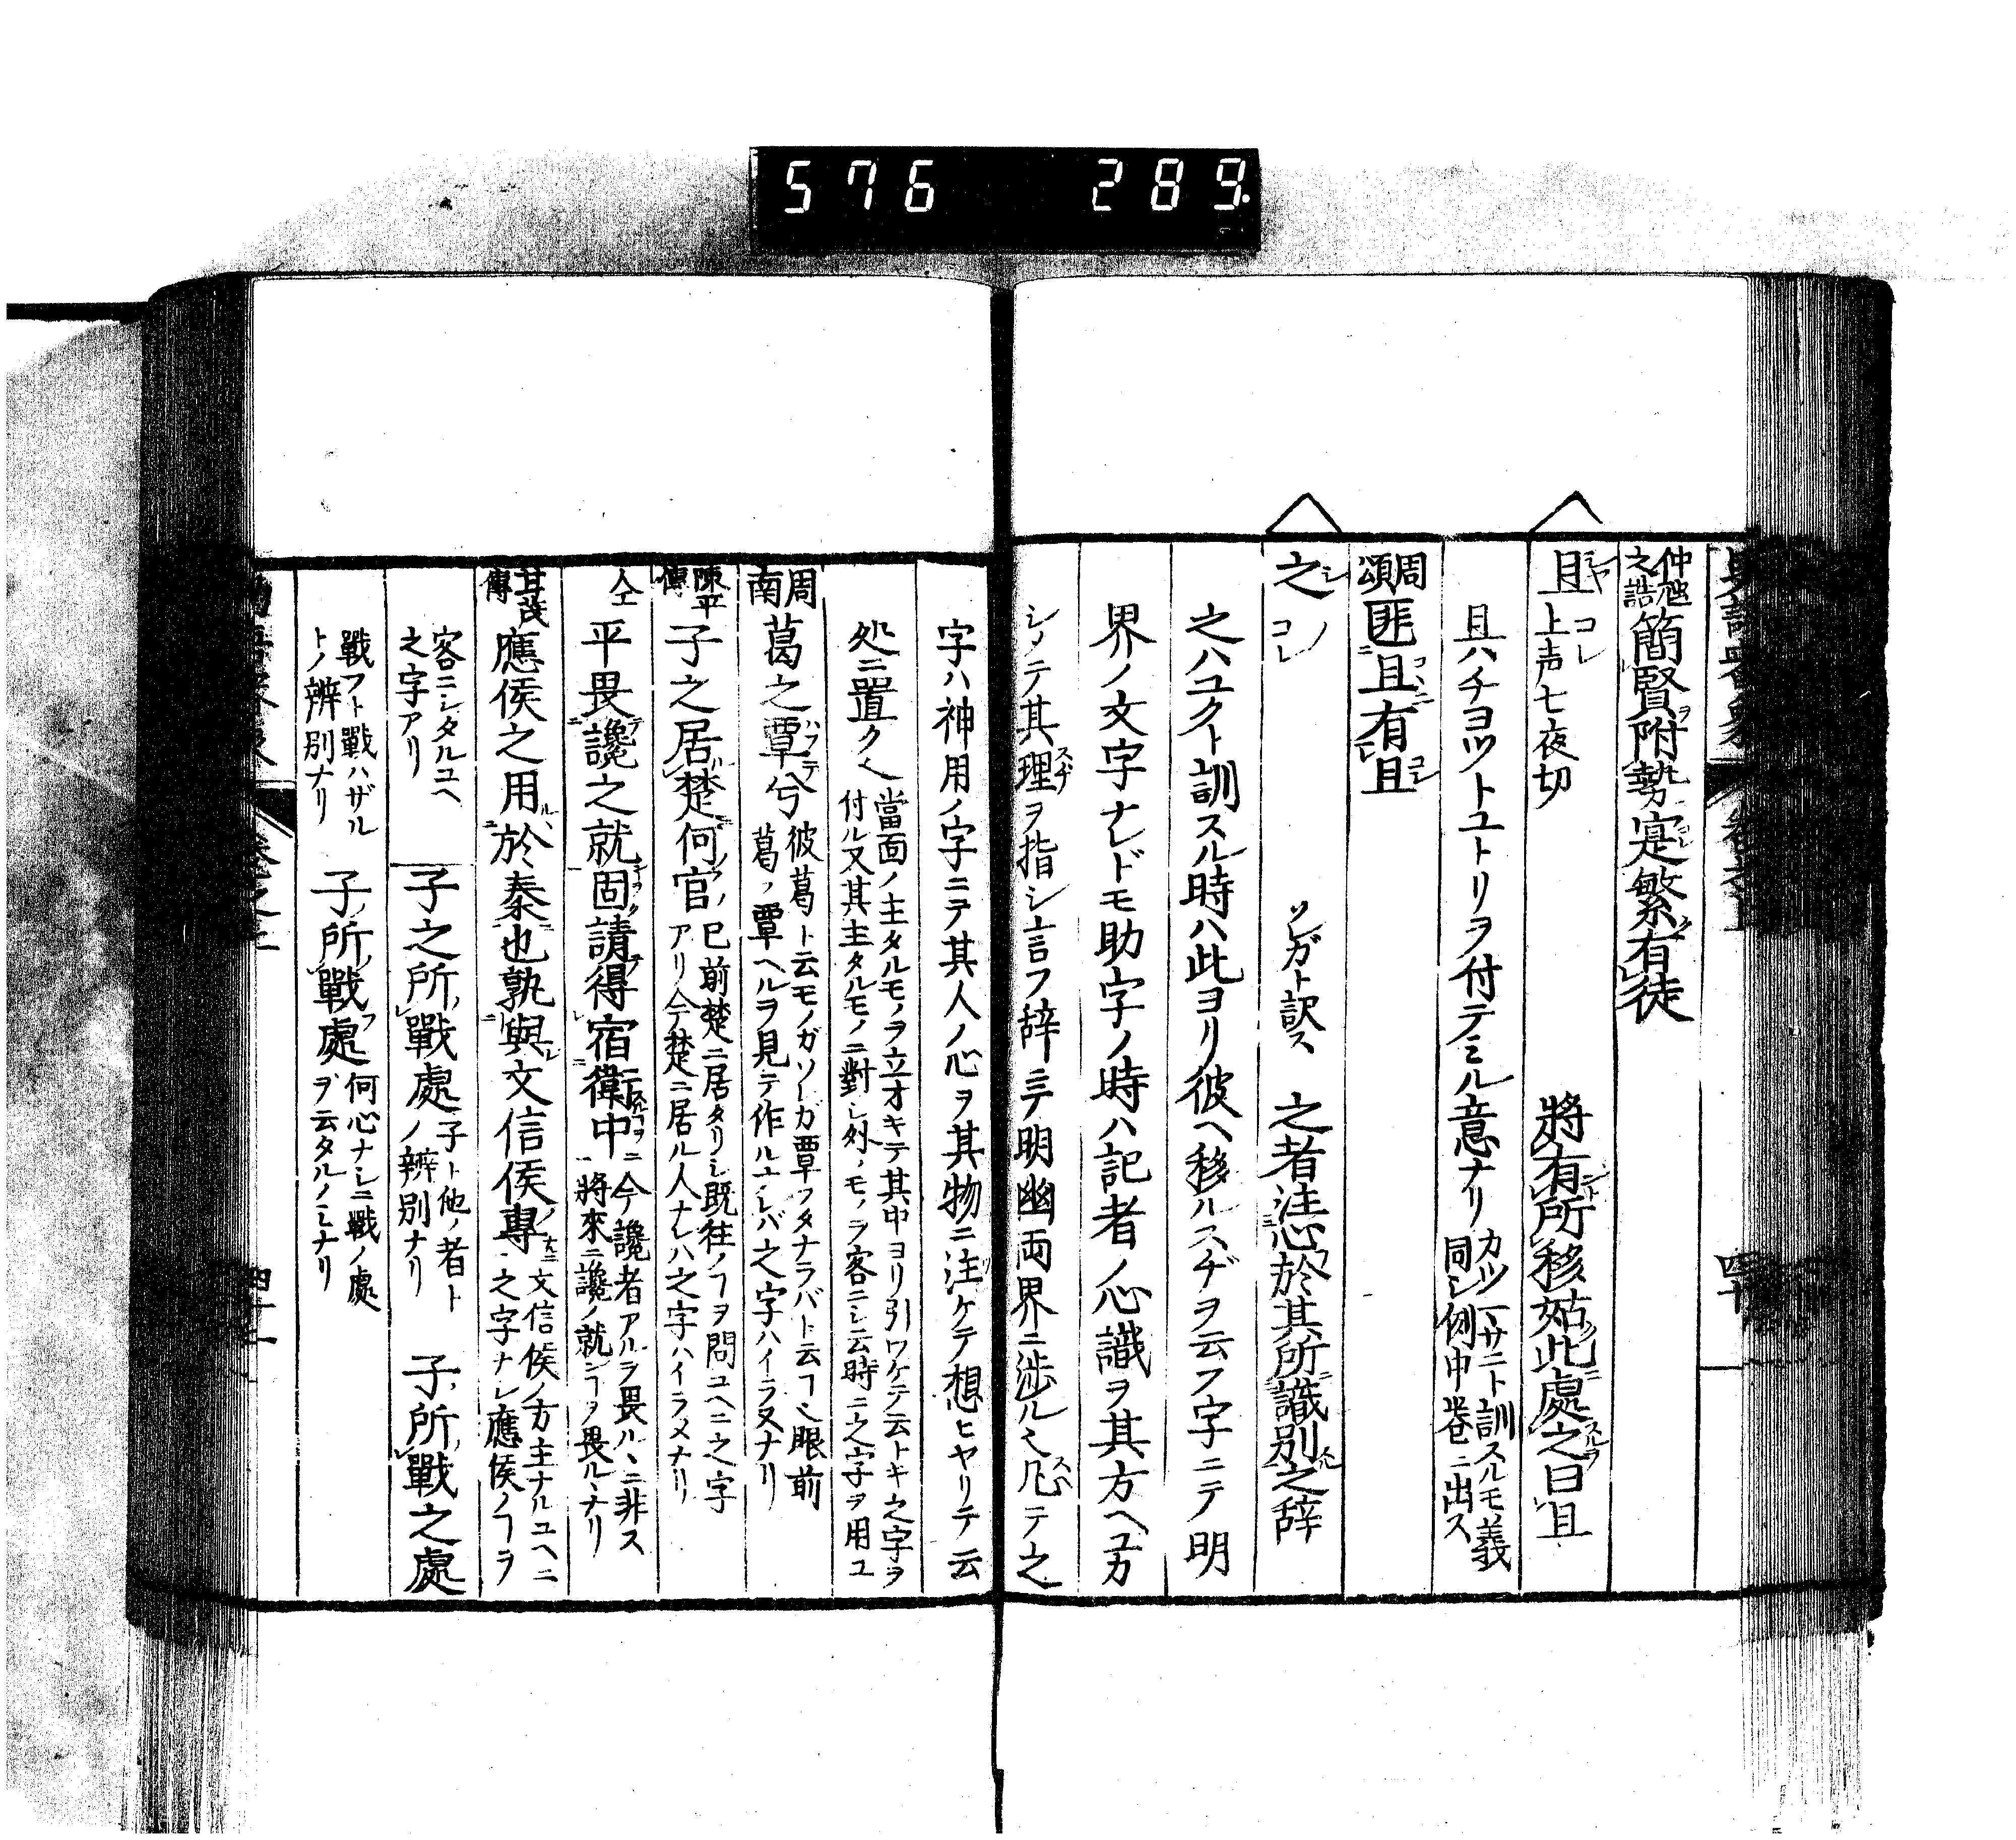 576 289.
仲虺之誥 簡賢附勢寔繁有徒
且 コレ 上声七夜切 將有所移姑此處之曰且
且ハチヨツトユトリヲ付テミル意ナリ カツマサニト訓スルモ義同シ例中巻ニ出ス
周頌 匪且有且
之 ノ コレ ソレガト訳ス 之者注心於其所識別之辞
之ハユクト訓スル時ハ此ヨリ彼ヘ移ルスヂヲ云フ字ニテ明
界ノ文字ナレドモ助字ノ時ハ記者ノ心識ヲ其方ヘユカ
シメテ其理ヲ指シ言フ辞ニテ明幽両界ニ渉ル也凡テ之
字ハ神用ノ字ニテ其人ノ心ヲ其物ニ注ケテ想ヒヤリテ云
処ニ置ク也 當面ノ主タルモノヲ立オキテ其中ヨリ引ワケテ云トキ之字ヲ付ル又其主タルモノニ對シ外ノモノヲ客ニシ云時ニ之字ヲ用ユ
周南 葛之覃兮 彼葛ト云モノガソレガ覃フタナラバト云フ也眼前葛ノ覃ヘルヲ見テ作ルナレバ之字ハイラヌナリ
陳平傳 子之居楚何官 已前楚ニ居タリシ既往ノヿヲ問ユヘニ之字アリ今楚ニ居ル人ナレハ之字ハイラヌナリ
仝 平畏讒之就固請得宿衛中 今讒者アルヲ畏ルヽニ非ス將來ニ讒ノ就ンヿヲ畏ルヽナリ
甘茂傳 應侯之用於秦也孰與文信侯專 文信侯ノ方主ナルユヘニ之字ナシ應侯ノヿヲ
客ニシタルユヘ之字アリ 子之所戰處 子ト他ノ者トノ辨別ナリ 子所戰之處
戰フト戰ハザルトノ辨別ナリ 子所戰處 何心ナシニ戰ノ處ヲ云タルノミナリ